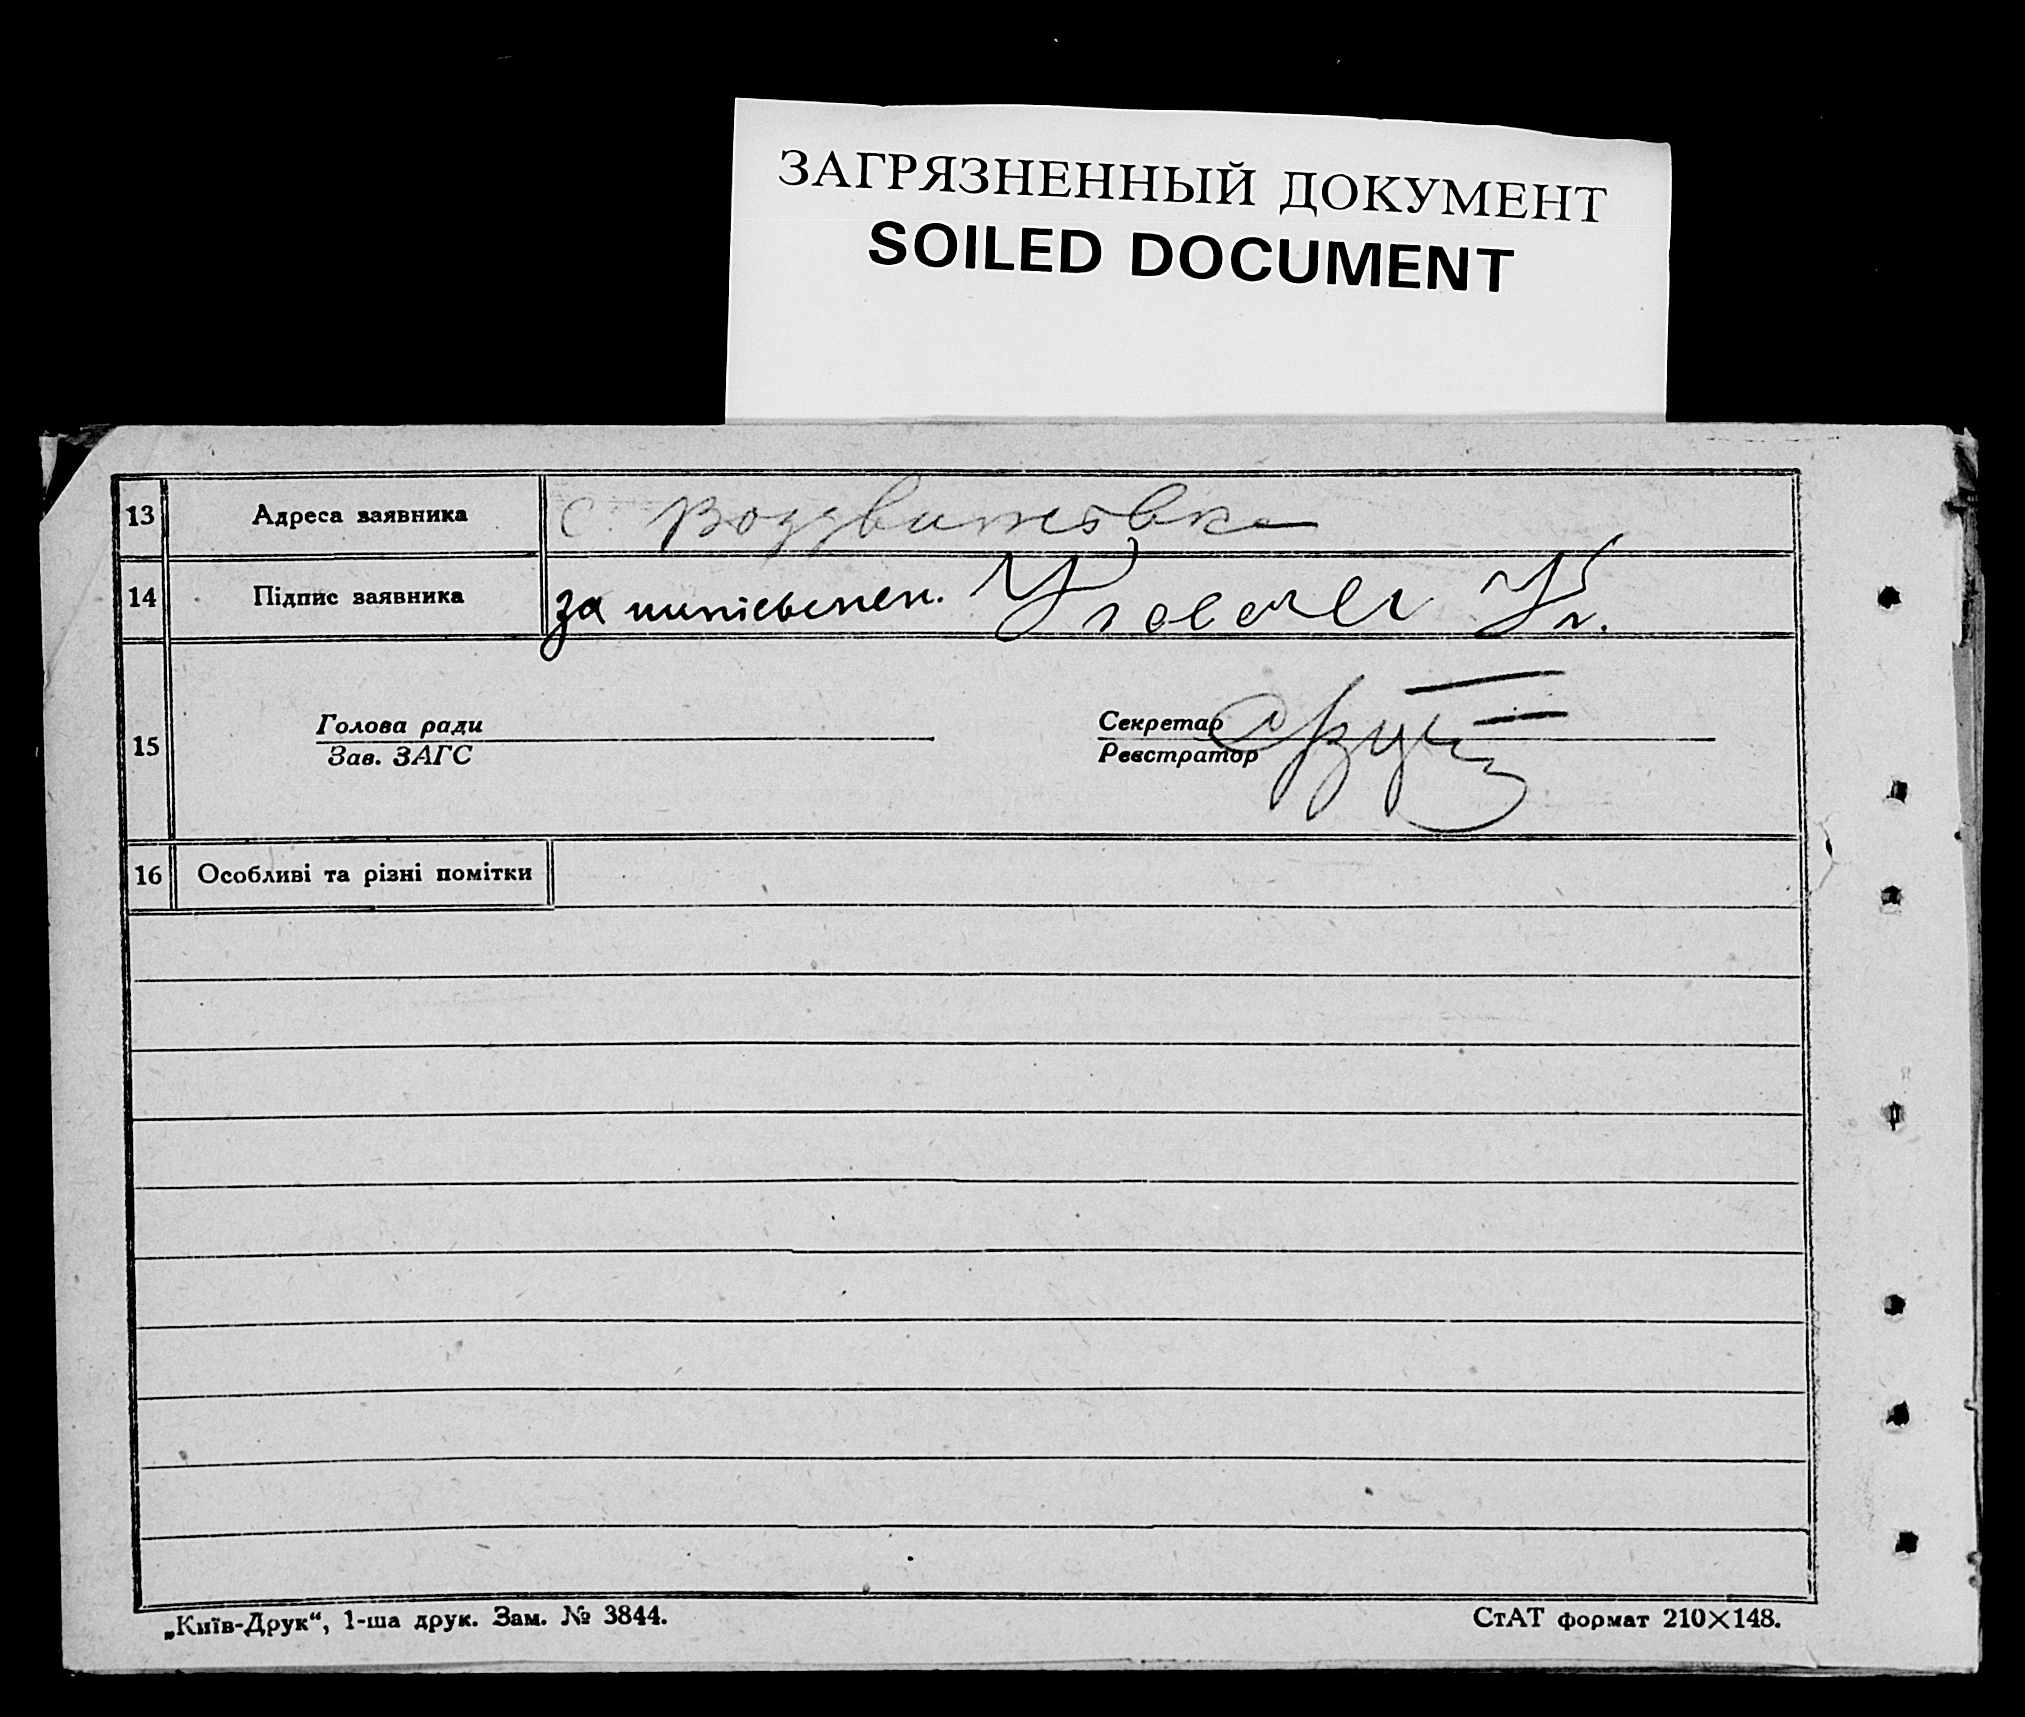 ЗАГРЯЗНЕННЫЙ ДОКУМЕНТ
SOILED DOCUMENT
13 Адреса заявника с. Воздвижевка
14 Підпис заявника за
15 Голова ради Секретар
Зав. ЗАГС Реєстратор
16 Особливі та різні помітки
„Київ-Друк“, 1-ша друк. Зам. № 3844. СтАТ формат 210×148.